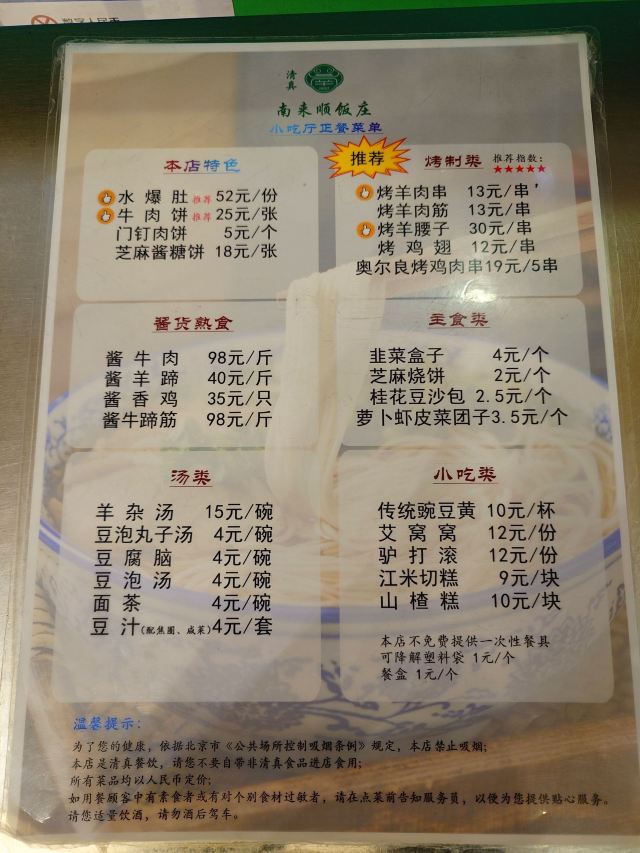 数字人民币
清真
南来顺饭庄
小吃厅正餐菜单
本店特色
水爆肚 推荐 52元/份
牛肉饼 推荐 25元/张
门钉肉饼 5元/个
芝麻酱糖饼 18元/张
推荐
烤制类 推荐指数:★★★★★
烤羊肉串 13元/串
烤羊肉筋 13元/串
烤羊腰子 30元/串
烤鸡翅 12元/串
奥尔良烤鸡肉串19元/5串
酱货熟食
酱牛肉 98元/斤
酱羊蹄 40元/斤
酱香鸡 35元/只
酱牛蹄筋 98元/斤
主食类
韭菜盒子 4元/个
芝麻烧饼 2元/个
桂花豆沙包 2.5元/个
萝卜虾皮菜团子3.5元/个
汤类
羊杂汤 15元/碗
豆泡丸子汤 4元/碗
豆腐脑 4元/碗
豆泡汤 4元/碗
面茶 4元/碗
豆汁(配焦圈、咸菜)4元/套
小吃类
传统豌豆黄 10元/杯
艾窝窝 12元/份
驴打滚 12元/份
江米切糕 9元/块
山楂糕 10元/块
本店不免费提供一次性餐具
可降解塑料袋 1元/个
餐盒 1元/个
温馨提示:
为了您的健康，依据北京市《公共场所控制吸烟条例》规定，本店禁止吸烟;
本店是清真餐饮，请您不要自带非清真食品进店食用;
所有菜品均以人民币定价;
如用餐顾客中有素食者或有对个别食材过敏者，请在点菜前告知服务员，以便为您提供贴心服务。
请您适量饮酒，请勿酒后驾车。